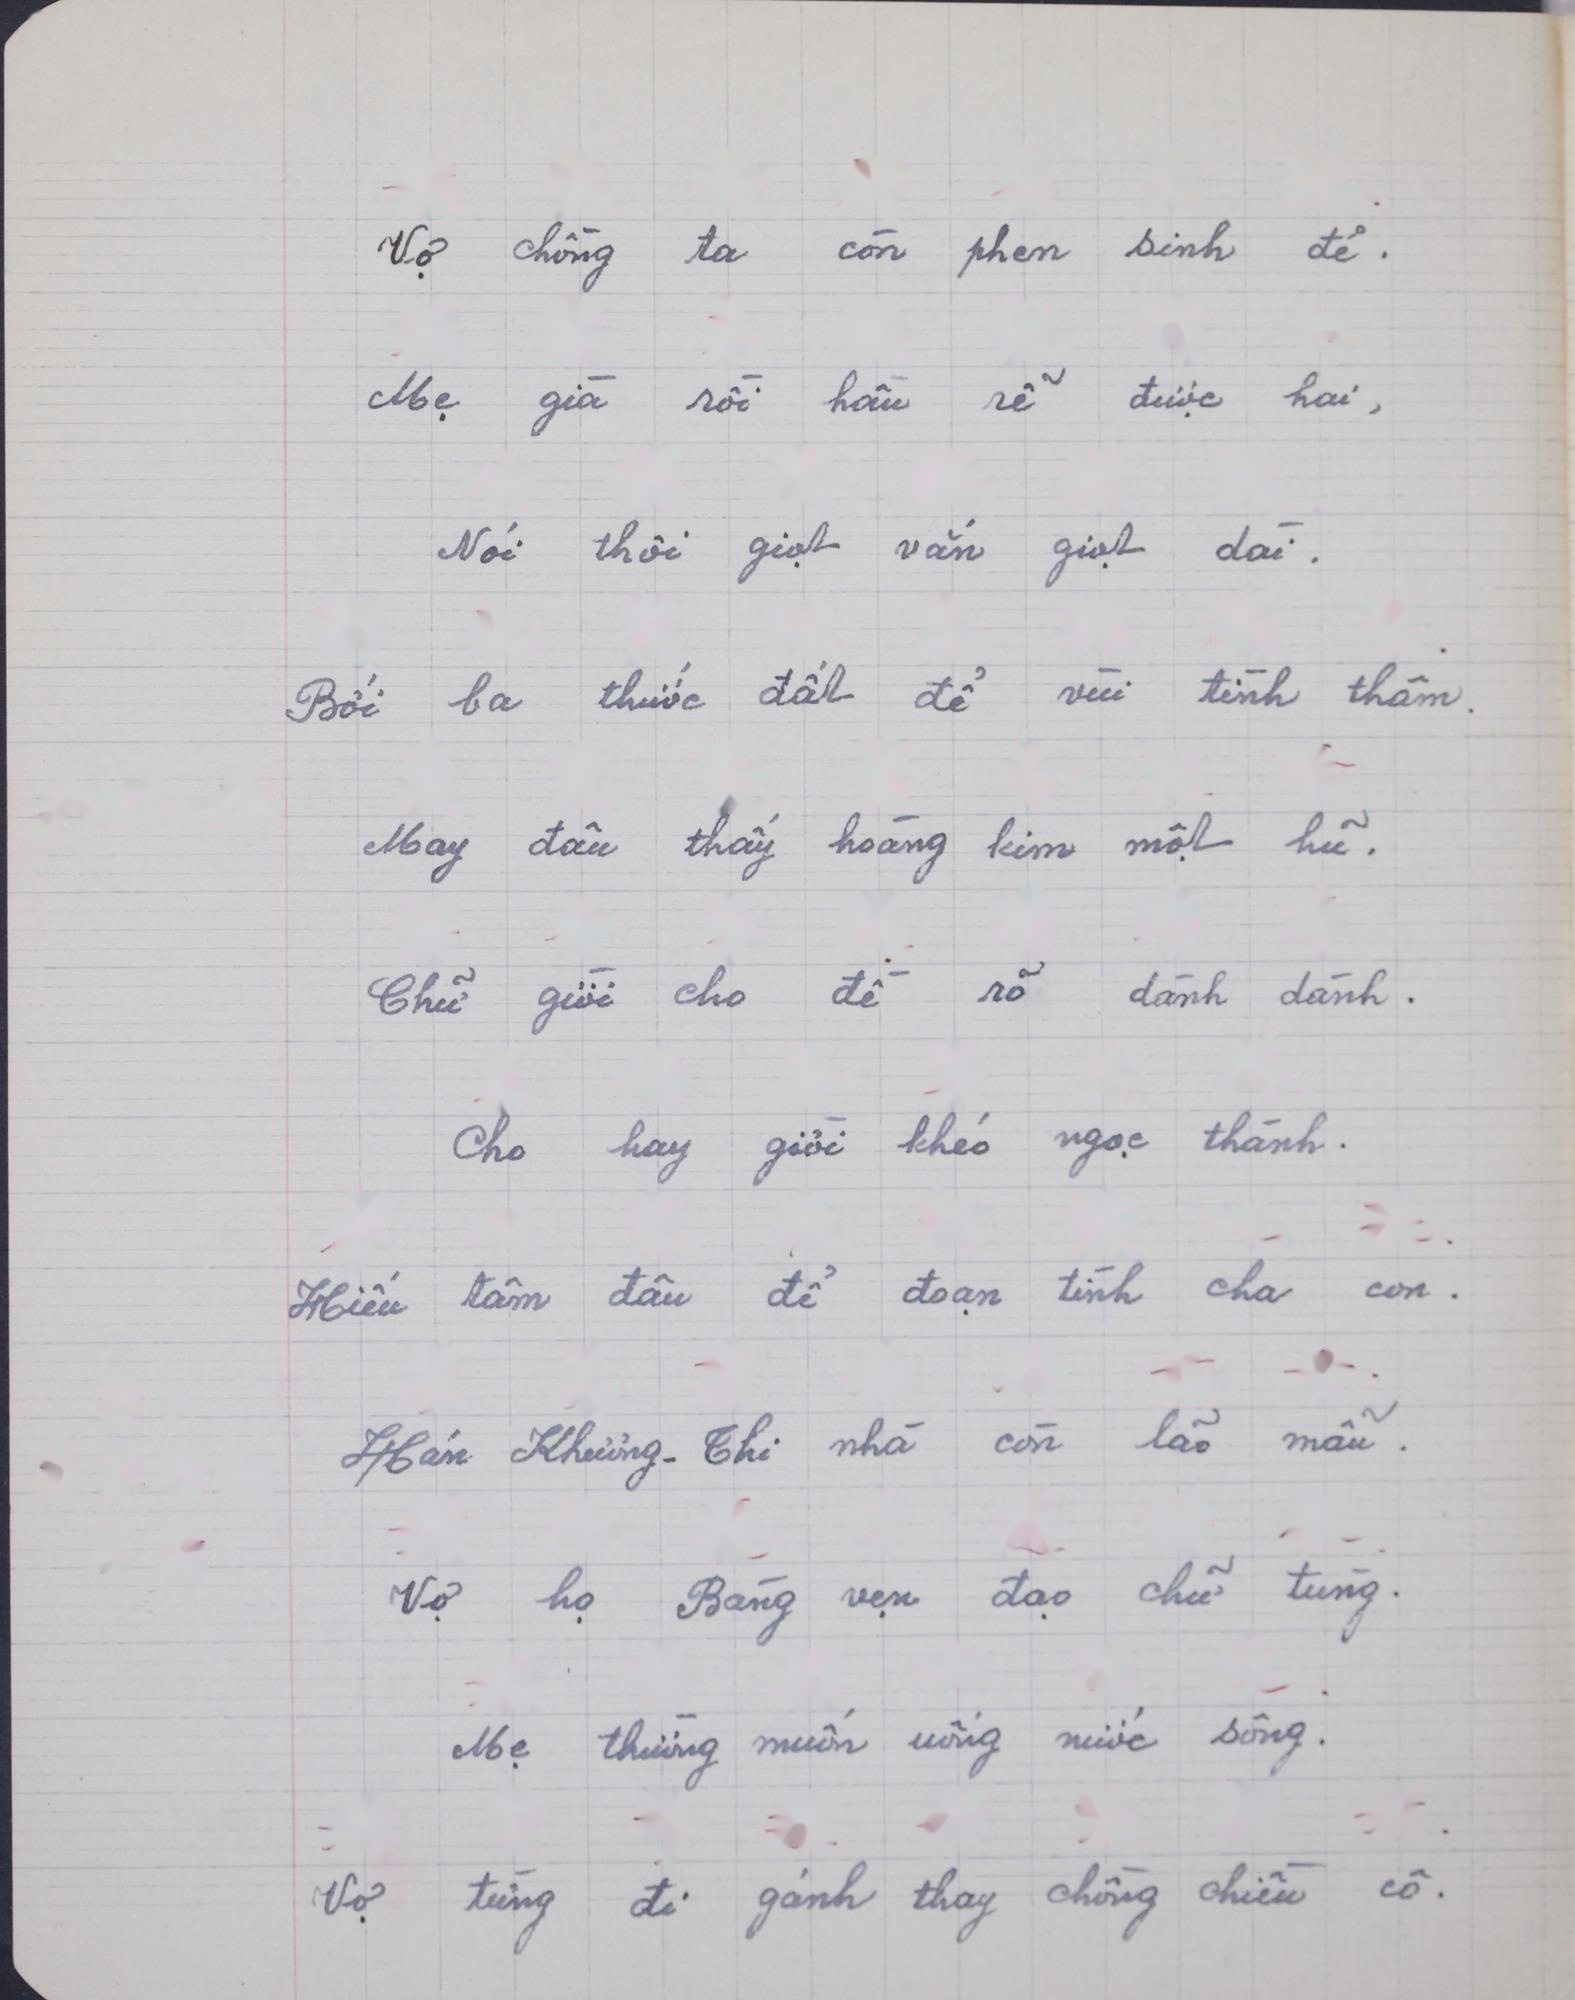 Vợ chồng ta còn phen sinh đẻ.
Mẹ già rồi hầu rễ được hai,
Nói thôi giọt vắn giọt dài.
Bới ba thước đất để vùi tình thâm.
May đâu thấy hoàng kim một hũ.
Chữ giời cho đề rõ dành dành.
Cho hay giời khéo ngọc thành.
Hiếu tâm đâu để đoạn tình cha con.
Hán Khương-Thi nhà còn lão mẫu.
Vợ họ Bàng vẹn đạo chữ tùng.
Mẹ thường muốn uống nước sông.
Vợ từng đi gánh thay chồng chiều cô.